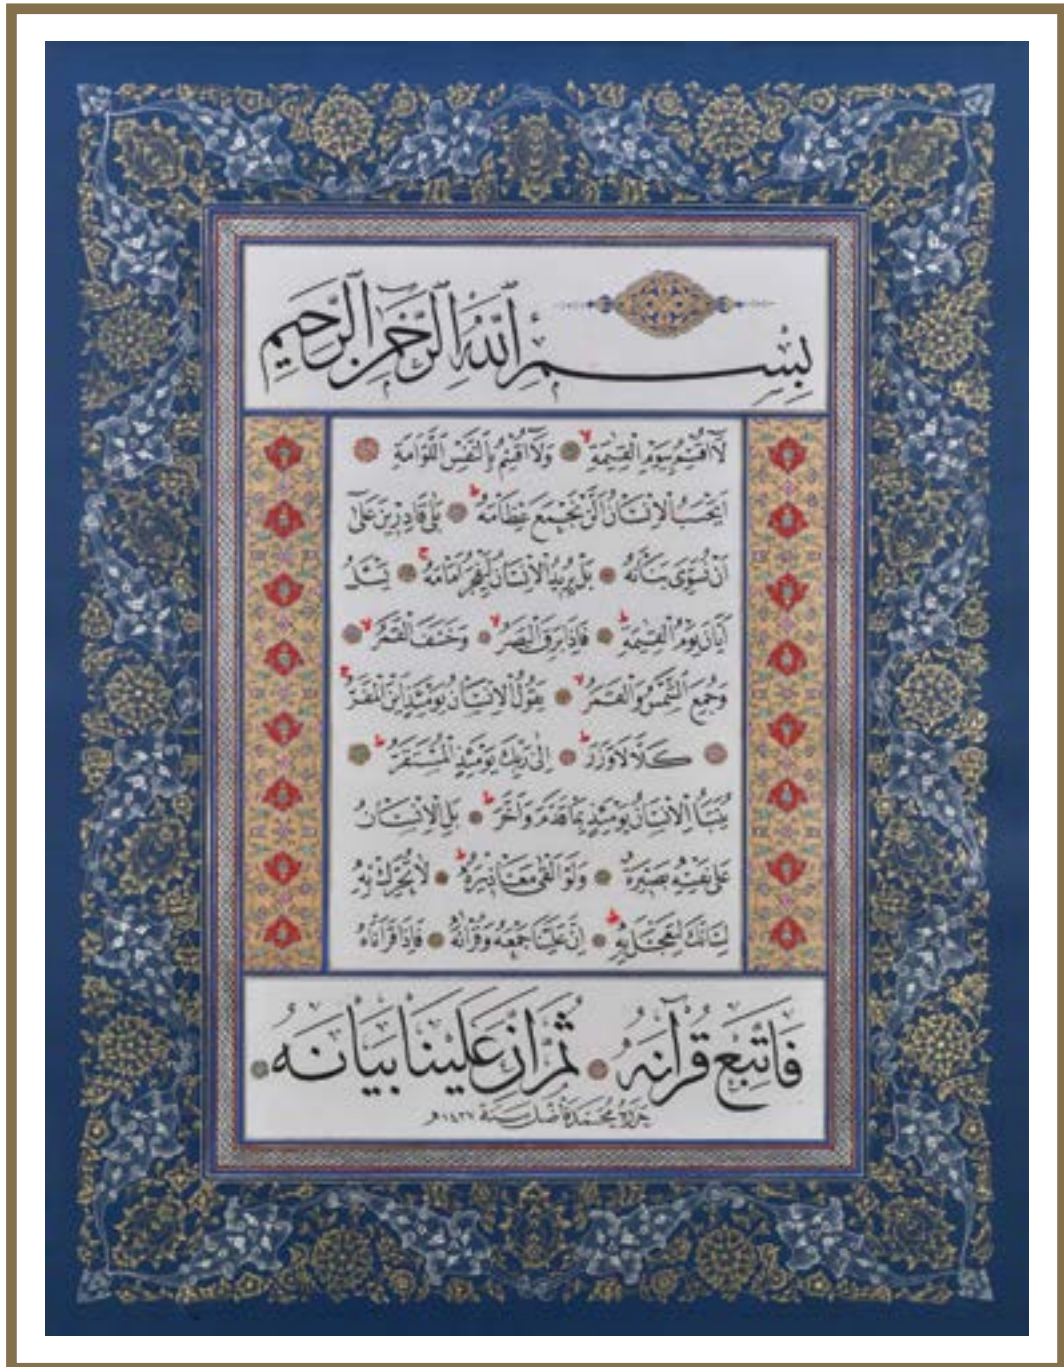 بِسْمِ اللّٰهِ الرَّحْمٰنِ الرَّحِيمِ
لَٓا اُقْسِمُ بِيَوْمِ الْقِيٰمَةِۙ وَلَٓا اُقْسِمُ بِالنَّفْسِ اللَّوَّامَةِ
اَيَحْسَبُ الْاِنْسَانُ اَلَّنْ نَجْمَعَ عِظَامَهُۜ بَلٰى قَادِر۪ينَ عَلٰٓى
اَنْ نُسَوِّيَ بَنَانَهُ بَلْ يُر۪يدُ الْاِنْسَانُ لِيَفْجُرَ اَمَامَهُۚ يَسْـَٔلُ
اَيَّانَ يَوْمُ الْقِيٰمَةِۜ فَاِذَا بَرِقَ الْبَصَرُۙ وَخَسَفَ الْقَمَرُۙ
وَجُمِعَ الشَّمْسُ وَالْقَمَرُۙ يَقُولُ الْاِنْسَانُ يَوْمَئِذٍ اَيْنَ الْمَفَرُّۚ
كَلَّا لَا وَزَرَۜ اِلٰى رَبِّكَ يَوْمَئِذٍ الْمُسْتَقَرُّۜ
يُنَبَّؤُا الْاِنْسَانُ يَوْمَئِذٍ بِمَا قَدَّمَ وَاَخَّرَۜ بَلِ الْاِنْسَانُ
عَلٰى نَفْسِه۪ بَص۪يرَةٌ وَلَوْ اَلْقٰى مَعَاذ۪يرَهُۜ لَا تُحَرِّكْ بِه۪
لِسَانَكَ لِتَعْجَلَ بِه۪ۜ اِنَّ عَلَيْنَا جَمْعَهُ وَقُرْاٰنَهُ فَاِذَا قَرَأْنَاهُ
فَاتَّبِعْ قُرْآنَهُ ثُمَّ اِنَّ عَلَيْنَا بَيَانَهُ
حرره محمد فاضل سنة ١٤٣٧هـ